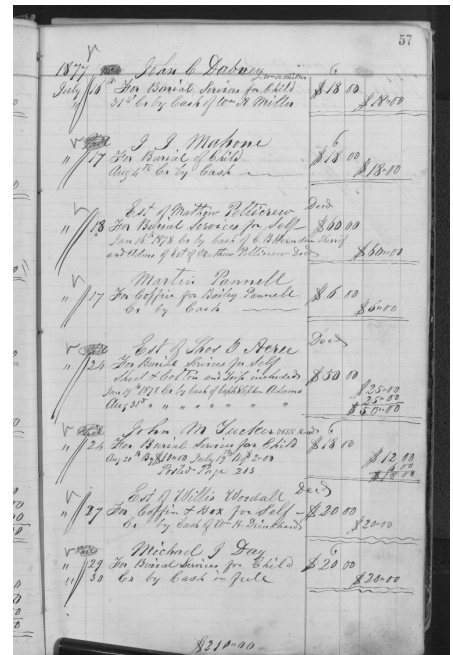 57
1877 John C Dabney 6
July 16 For Burial Services for Child $18 00
31st Cr by Cash of Wm A Miller $18.00
J J Mahone 6
" 17 For Burial of Child $18 00
Aug 4th Cr by Cash $18.00
Est of Mathew Petticrew Decd
" 18 For Burial Services for Self $60 00
Jan 16th 1878 Cr by Cash of C B Sheriff
and Admr of Est of Mathew Petticrew Decd $60.00
Martin Pannell
" 17 For Coffin for Bailey Pannell $6 00
Cr by Cash $6.00
Est of Thos Acree Decd
" 24 For Burial Services for Self $50 00
included
1878 Cr by Cash of Adams $25.00
Aug 31st " " " " " " 25.00
$50.00
John M Tucker 6
" 24 For Burial Services for Child $18 00
Aug 20th By $10.00 July 19th By $2.00 $12.00
Posted Page 213 6.00
$18.00
Est of Willis Woodall Decd
" 27 For Coffin & Box for Self $20 00
Cr by Cash of Wm H $20.00
Michael J Day 6
" 29 For Burial Services for Child $20 00
" 30 Cr by Cash in full $20.00
$210.00